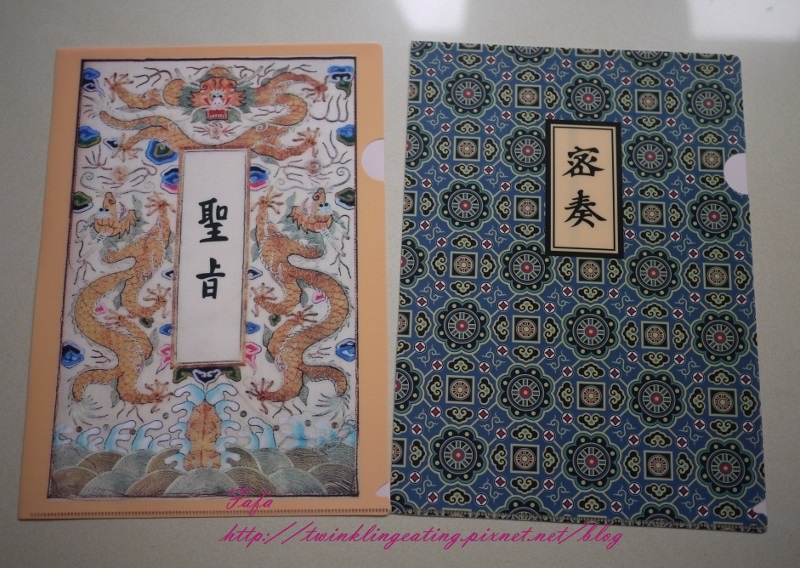 聖旨
密奏
Tafa
http://twinklingeating.pixnet.net/blog